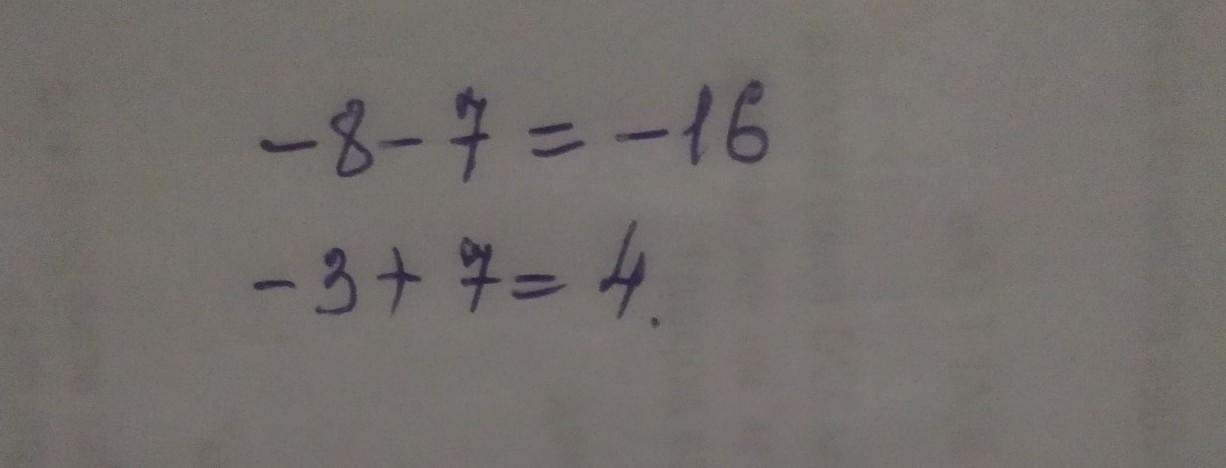 -8-7=-16
-3+7=4.